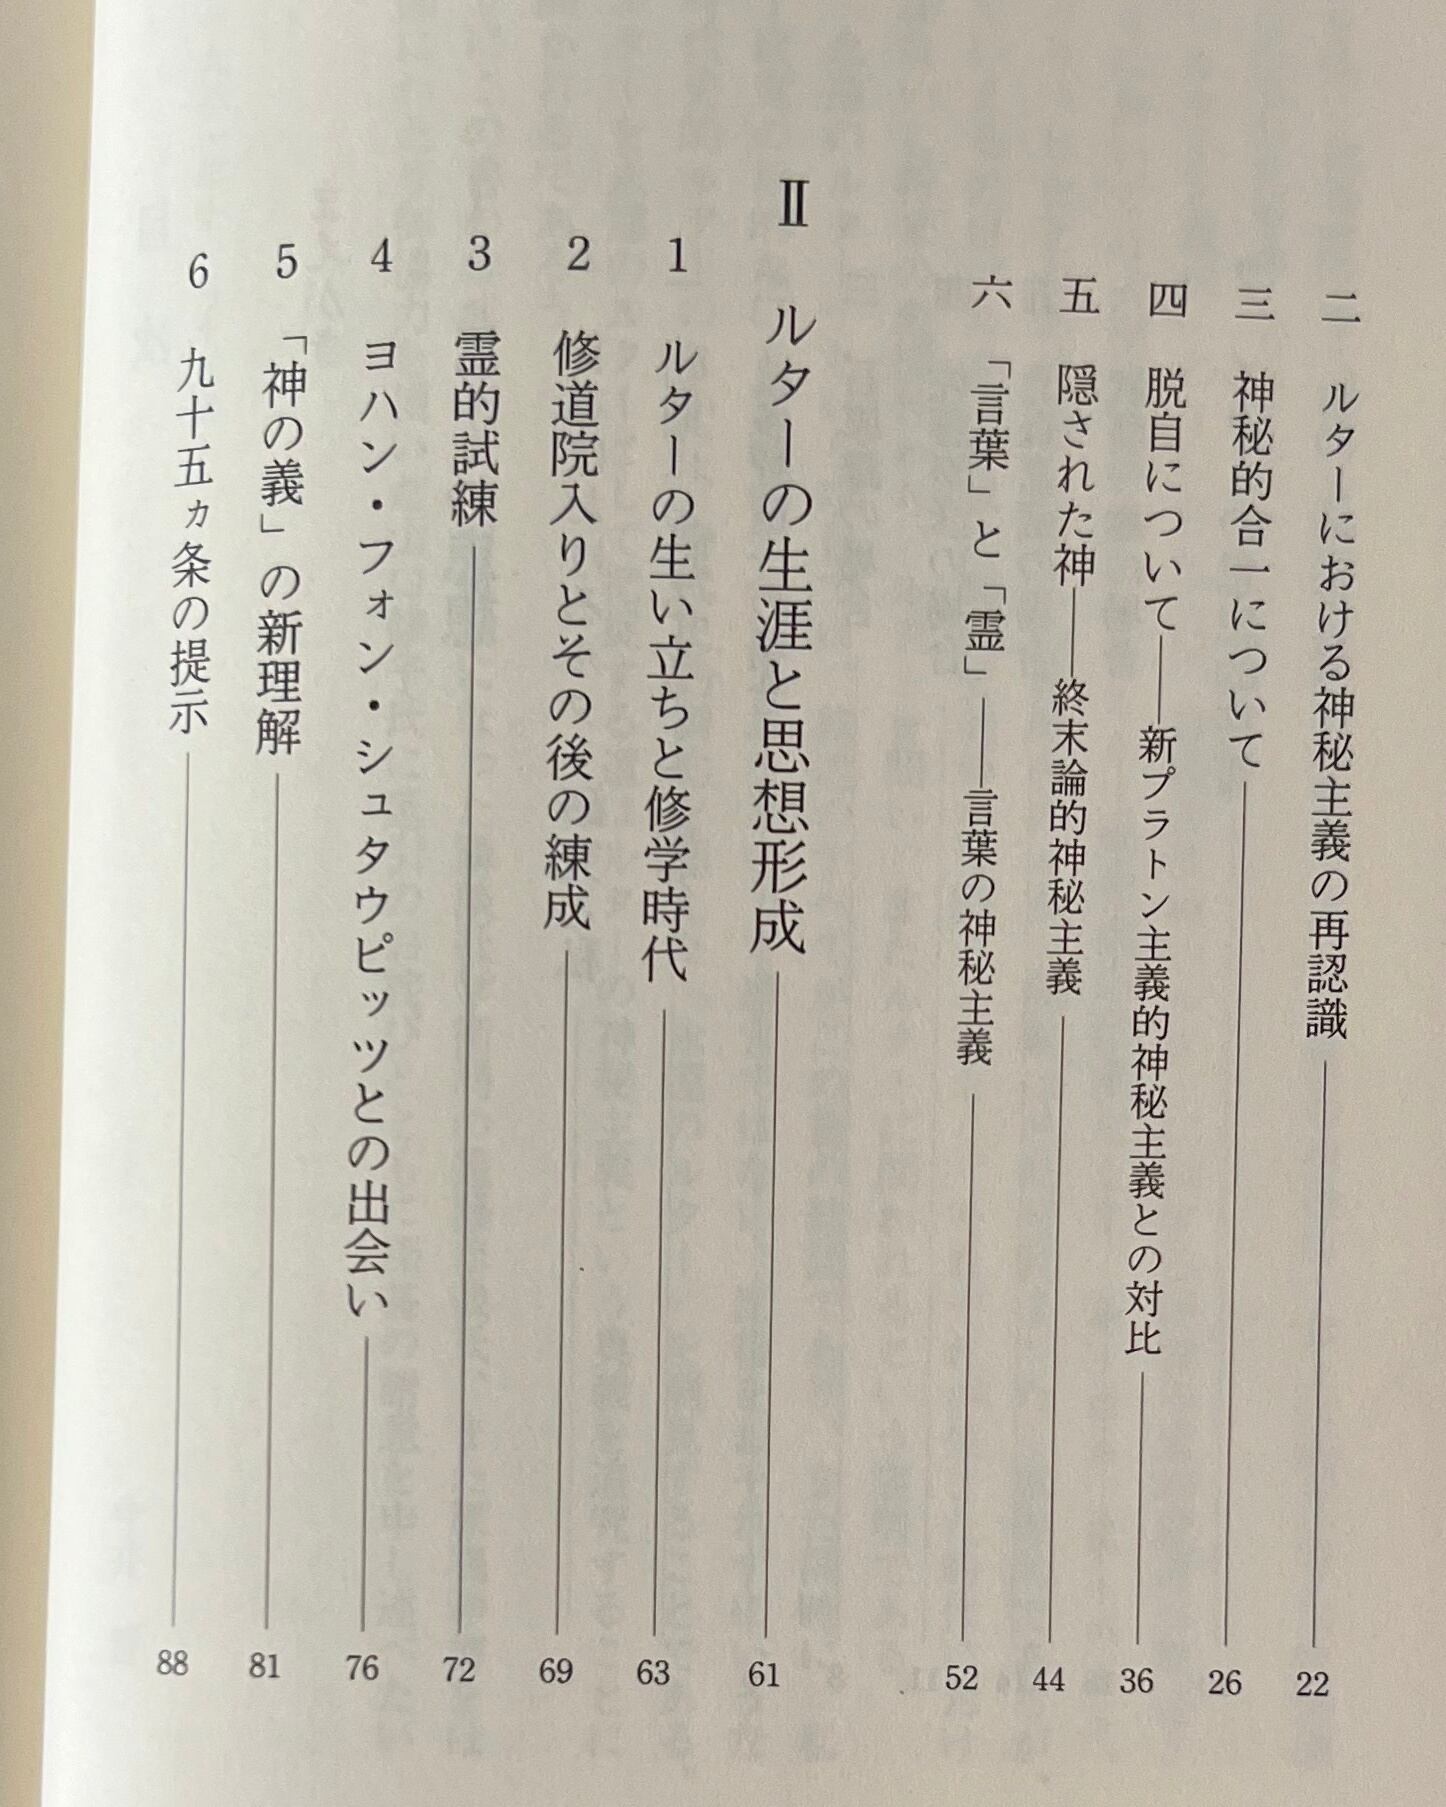 二 ルターにおける神秘主義の再認識 22
三 神秘的合一について 26
四 脱自について――新プラトン主義的神秘主義との対比 36
五 隠された神――終末論的神秘主義 44
六 「言葉」と「霊」――言葉の神秘主義 52
Ⅱ ルターの生涯と思想形成 61
1 ルターの生い立ちと修学時代 63
2 修道院入りとその後の練成 69
3 霊的試練 72
4 ヨハン・フォン・シュタウピッツとの出会い 76
5 「神の義」の新理解 81
6 九十五ヵ条の提示 88